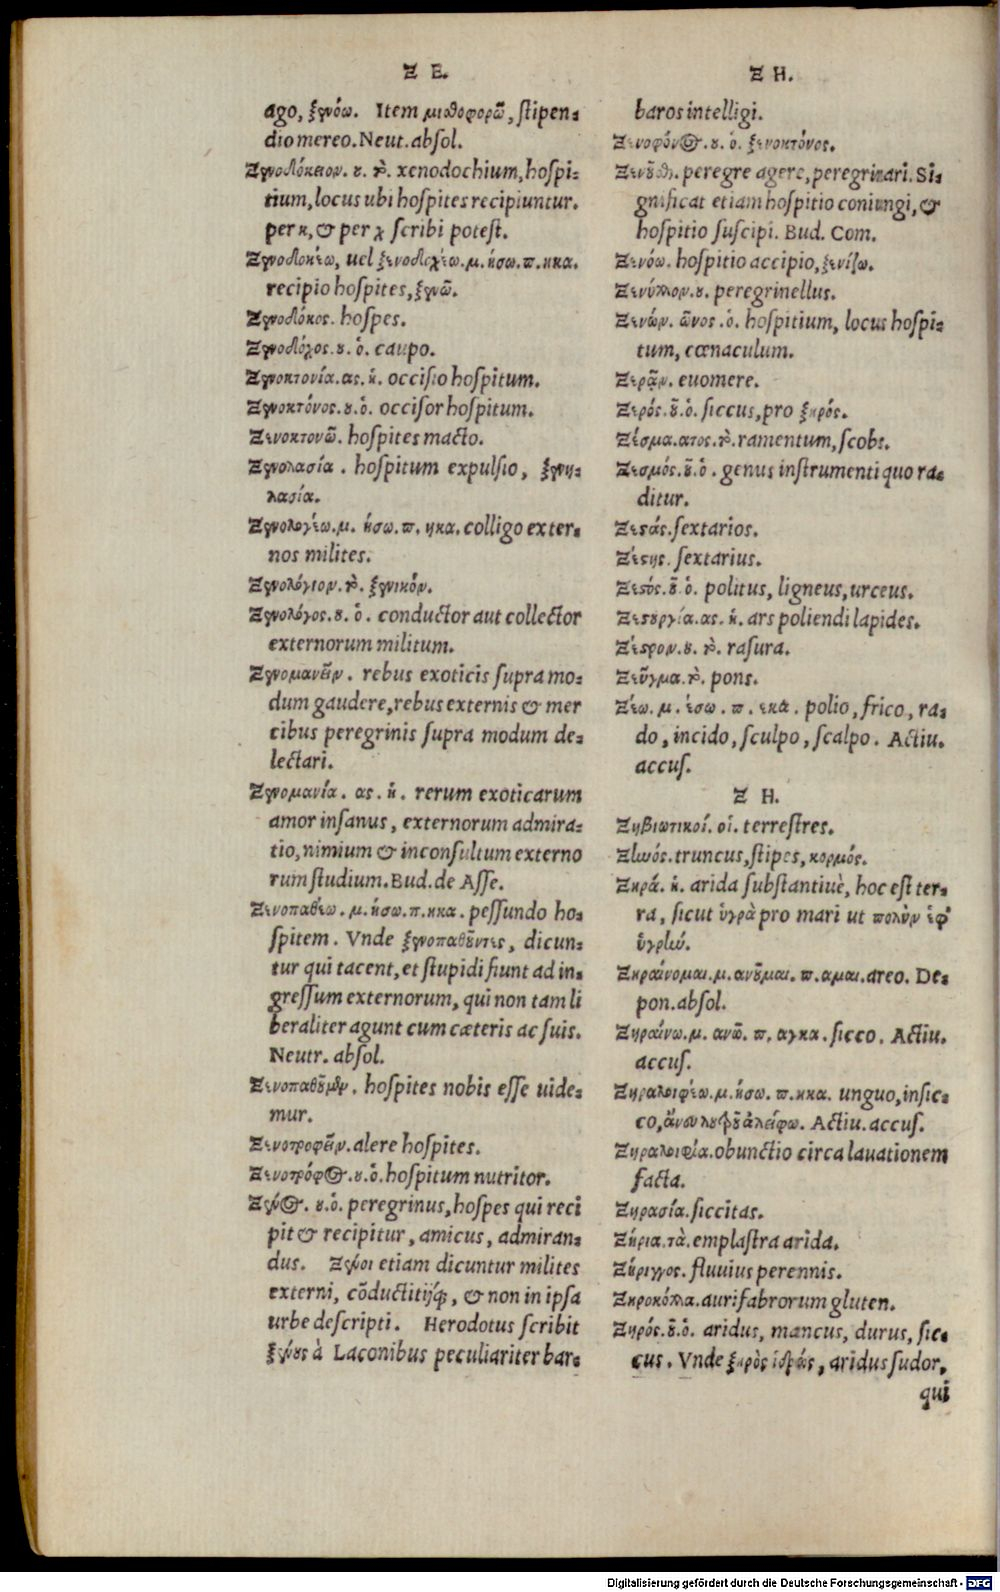 Ξ Ε.
ago, ξενόω. Item μισθοφορῶ, ſtipen-
dio mereo. Neut. abſol.
Ξενοδόκειον. ου. τὸ. xenodochium, hoſpi-
tium, locus ubi hoſpites recipiuntur.
per κ, & per χ ſcribi poteſt.
Ξενοδοκέω, uel ξενοδοχέω. μ. ήσω. π. ηκα.
recipio hoſpites, ξενῶ.
Ξενοδόκος. hoſpes.
Ξενοδόχος. ου. ὁ. caupo.
Ξενοκτονία. ας. ἡ. occiſio hoſpitum.
Ξενοκτόνος. ου. ὁ. occiſor hoſpitum.
Ξενοκτονῶ. hoſpites macto.
Ξενολασία. hoſpitum expulſio, ξενη-
λασία.
Ξενολογέω. μ. ήσω. π. ηκα. colligo exter-
nos milites.
Ξενολόγιον. τὸ. ξενικόν.
Ξενολόγος. ου. ὁ. conductor aut collector
externorum militum.
Ξενομανεῖν. rebus exoticis ſupra mo-
dum gaudere, rebus externis & mer
cibus peregrinis ſupra modum de-
lectari.
Ξενομανία. ας. ἡ. rerum exoticarum
amor inſanus, externorum admira-
tio, nimium & inconſultum externo
rum ſtudium. Bud. de Aſſe.
Ξενοπαθέω. μ. ήσω. π. ηκα. peſſundo ho-
ſpitem. Vnde ξενοπαθοῦντες, dicun-
tur qui tacent, et ſtupidi fiunt ad in-
greſſum externorum, qui non tam li
beraliter agunt cum cæteris ac ſuis.
Neutr. abſol.
Ξενοπαθοῦμεν. hoſpites nobis eſſe uide-
mur.
Ξενοτροφεῖν. alere hoſpites.
Ξενοτρόφος. ου. ὁ. hoſpitum nutritor.
Ξένος. ου. ὁ. peregrinus, hoſpes qui reci
pit & recipitur, amicus, admiran-
dus. Ξένοι etiam dicuntur milites
externi, cõductitijq́;, & non in ipſa
urbe deſcripti. Herodotus ſcribit
ξένους à Laconibus peculiariter bar-
Ξ Η.
baros intelligi.
Ξενοφόνος. ου. ὁ. ξενοκτόνος.
Ξενοῦσθαι. peregre agere, peregrinari. Si-
gnificat etiam hoſpitio coniungi, &
hoſpitio ſuſcipi. Bud. Com.
Ξενόω. hoſpitio accipio, ξενίζω.
Ξενύλλιον. ου. peregrinellus.
Ξενών. ῶνος. ὁ. hoſpitium, locus hoſpi-
tum, cœnaculum.
Ξερᾷν. euomere.
Ξερός. οῦ. ὁ. ſiccus, pro ξηρός.
Ξέσμα. ατος. τὸ. ramentum, ſcobs.
Ξεσμός. οῦ. ὁ. genus inſtrumenti quo ra-
ditur.
Ξεστάς. ſextarios.
Ξέστης. ſextarius.
Ξεστός. οῦ. ὁ. politus, ligneus, urceus.
Ξεστουργία. ας. ἡ. ars poliendi lapides.
Ξέστρον. ου. τὸ. raſura.
Ξεῦγμα. τὸ. pons.
Ξέω. μ. έσω. π. εκα. polio, frico, ra-
do, incido, ſculpo, ſcalpo. Actiu.
accuſ.
Ξ Η.
Ξηβιωτικοί. οἱ. terreſtres.
Ξηνός. truncus, ſtipes, κορμός.
Ξηρά. ἡ. arida ſubſtantiuè, hoc eſt ter-
ra, ſicut ὑγρὰ pro mari ut πολὺν ἐφ'
ὑγρήν.
Ξηραίνομαι. μ. ανοῦμαι. π. αμαι. areo. De-
pon. abſol.
Ξηραίνω. μ. ανῶ. π. αγκα. ſicco. Actiu.
accuſ.
Ξηραλοιφέω. μ. ήσω. π. ηκα. unguo, inſic-
co, ἄνευ λουτροῦ ἀλείφω. Actiu. accuſ.
Ξηραλοιφία. obunctio circa lauationem
facta.
Ξηρασία. ſiccitas.
Ξήρια. τὰ. emplaſtra arida.
Ξήριγγος. fluuius perennis.
Ξηροκόλλα. aurifabrorum gluten.
Ξηρός. οῦ. ὁ. aridus, mancus, durus, ſic-
cus. Vnde ξηρὸς ἱδρώς, aridus ſudor,
qui
Digitalisierung gefördert durch die Deutsche Forschungsgemeinschaft - DFG